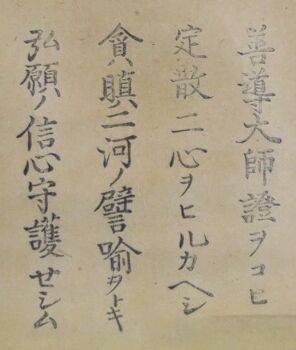 善導大師證ヲコヒ
定散二心ヲヒルカヘシ
貪瞋二河ノ譬喻ヲトキ
弘願ノ信心守護セシム